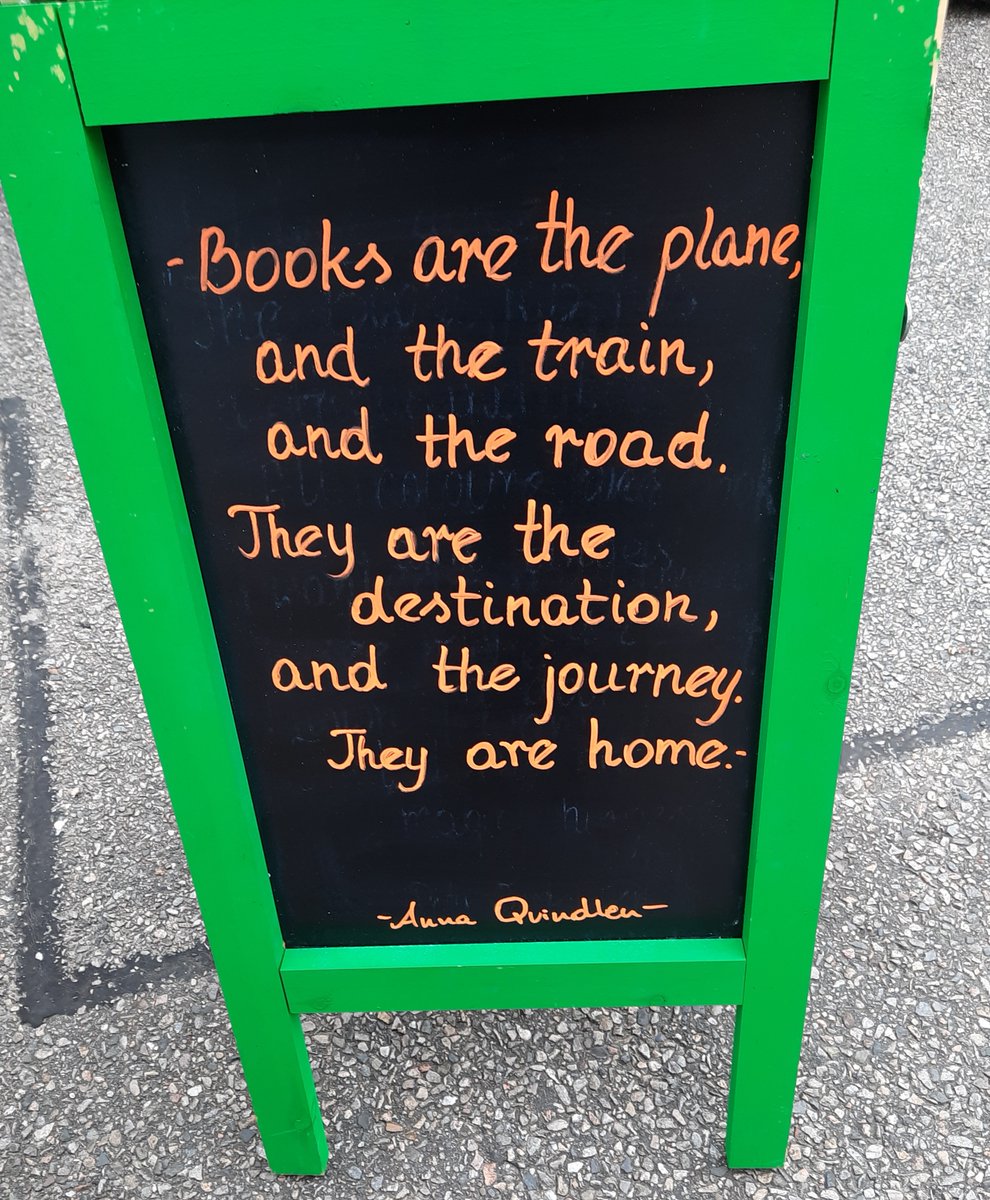 -Books are the plane,
and the train,
and the road.
They are the
destination,
and the journey.
They are home.-
-Anna Quindlen-